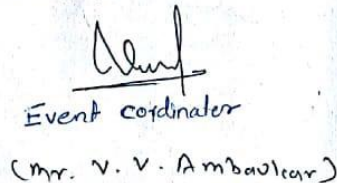 Event cordinater
(Mr. V. V. Ambavkar)